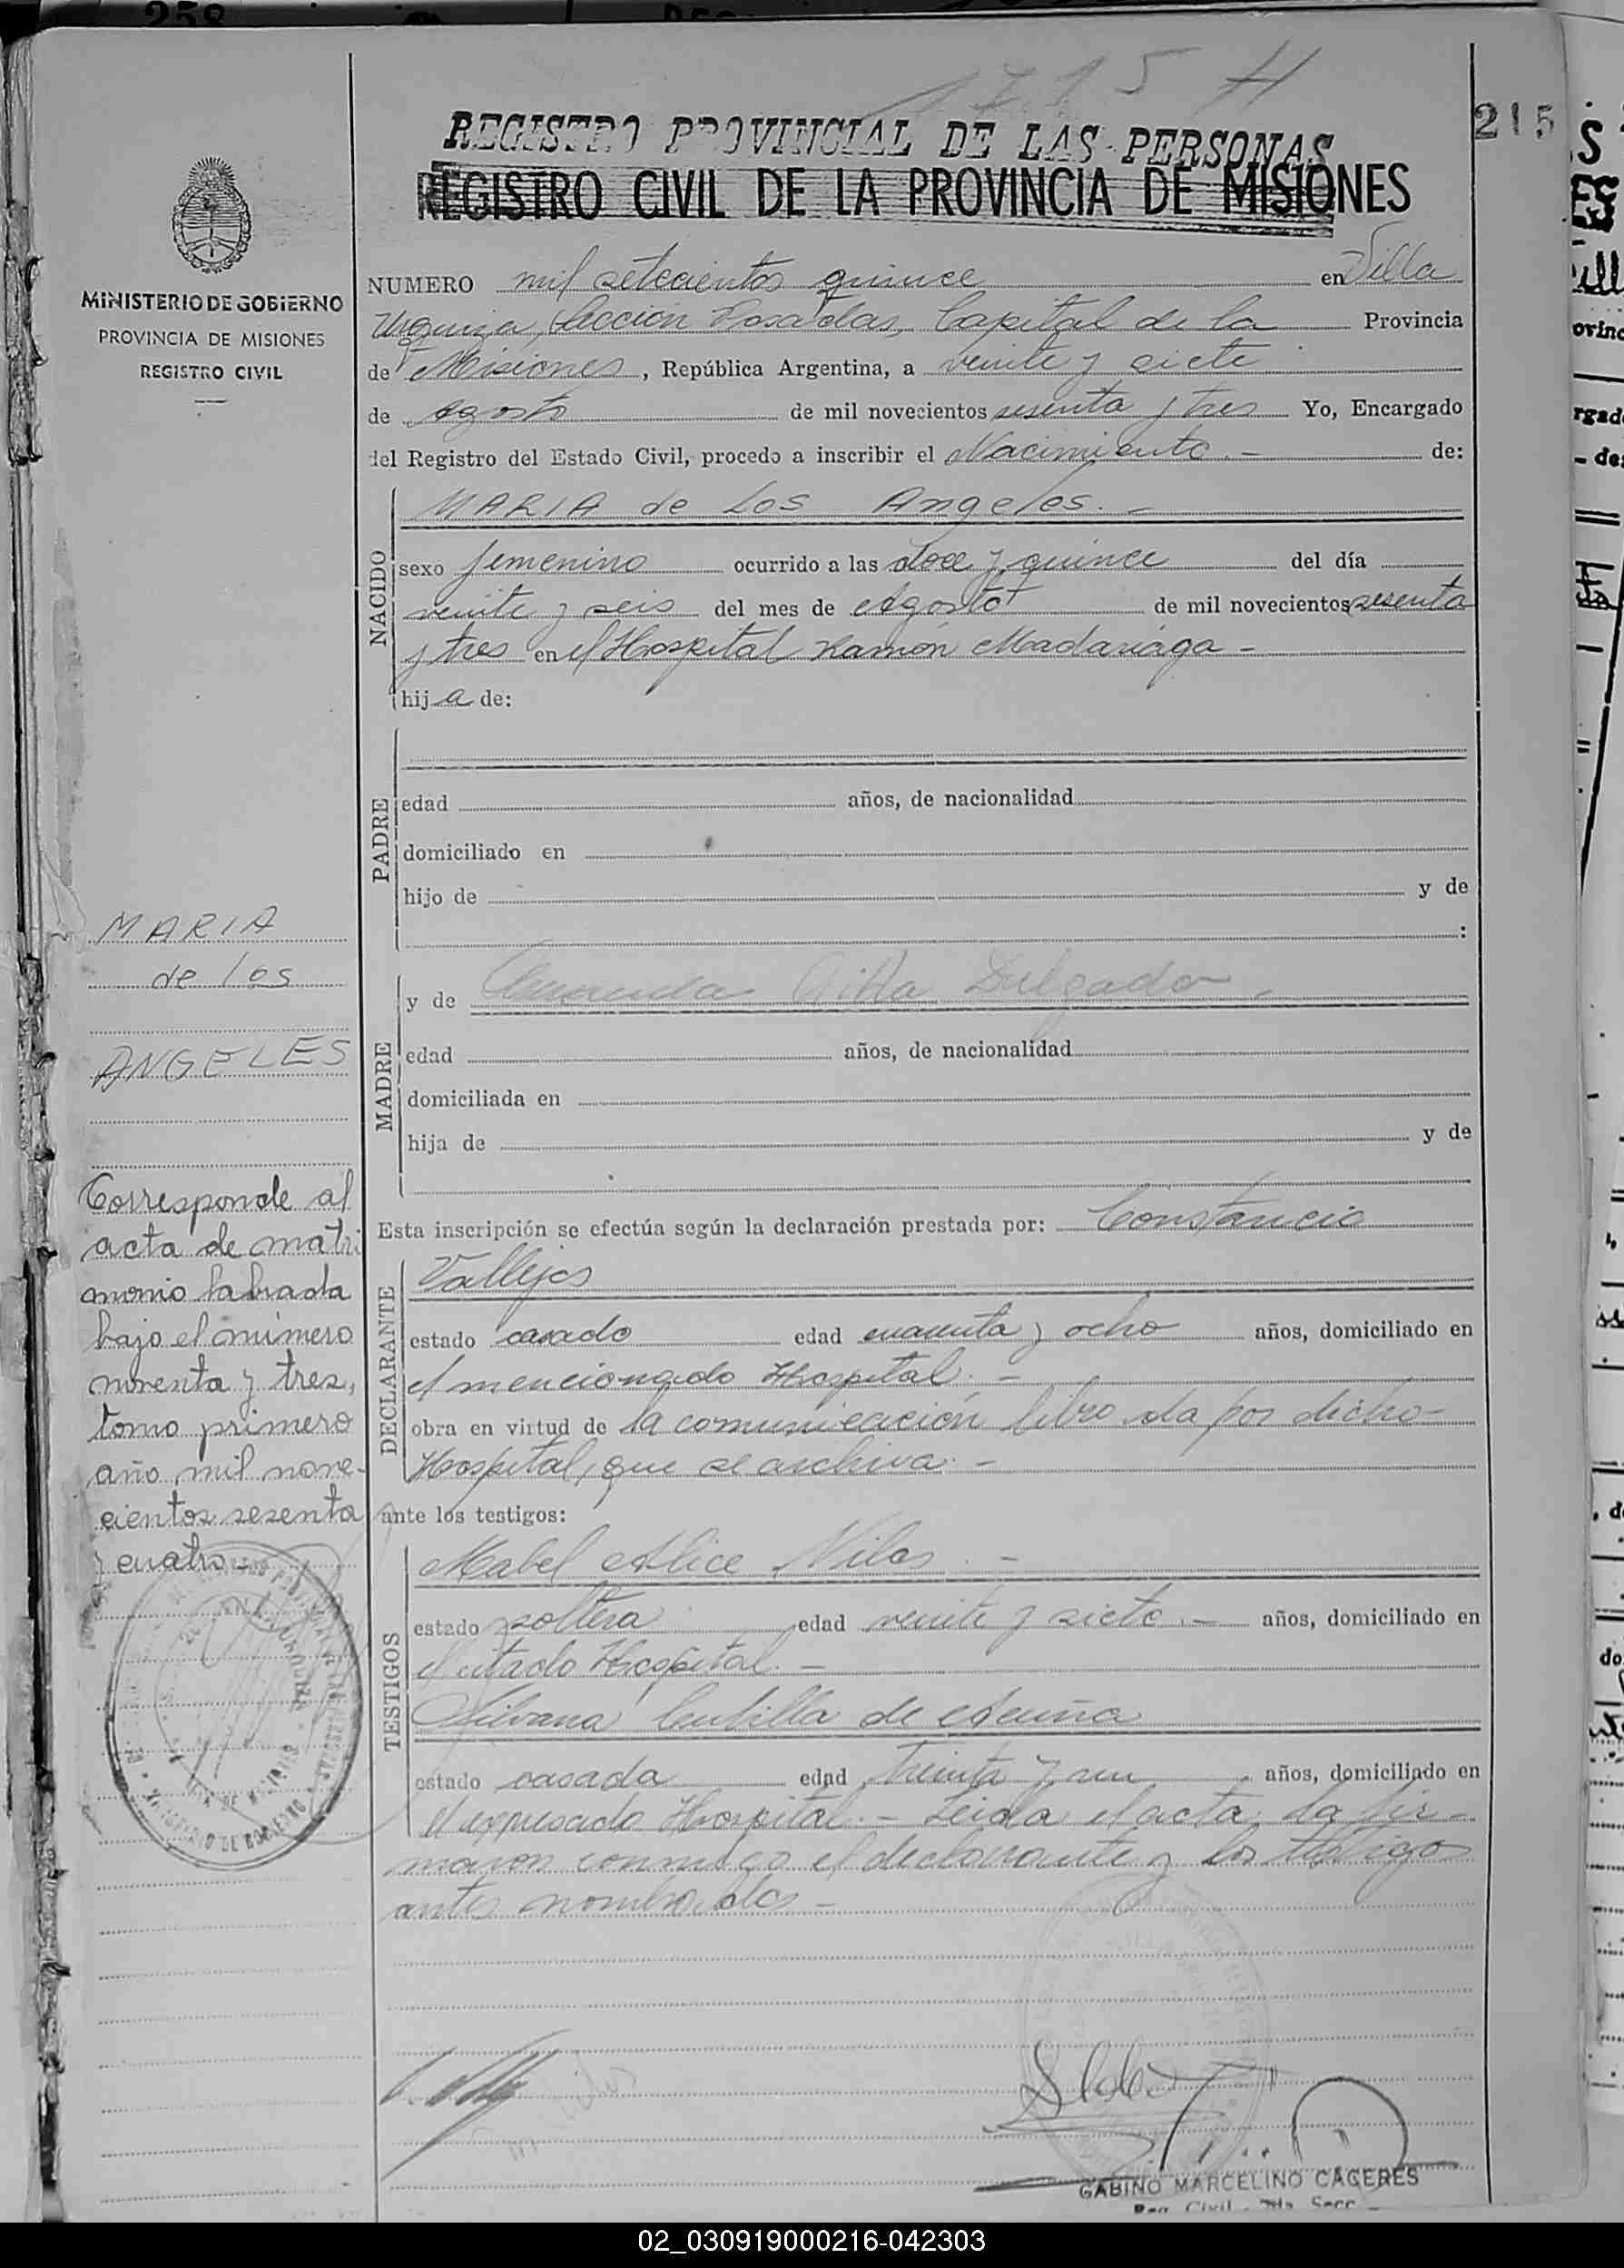 1715 H
215
REGISTRO PROVINCIAL DE LAS PERSONAS
REGISTRO CIVIL DE LA PROVINCIA DE MISIONES
MINISTERIO DE GOBIERNO
PROVINCIA DE MISIONES
REGISTRO CIVIL
NUMERO mil setecientos quince en Villa
Urquiza, Sección Posadas, Capital de la Provincia
de Misiones, República Argentina, a veinte y siete
de Agosto de mil novecientos sesenta y tres Yo, Encargado
del Registro del Estado Civil, procedo a inscribir el Nacimiento.- de:
NACIDO
MARIA de Los Angeles.-
sexo femenino ocurrido a las doce y quince del día
veinte y seis del mes de Agosto de mil novecientos sesenta
y tres en el Hospital Ramón Madariaga -
hija de:
PADRE
edad años, de nacionalidad
domiciliado en
hijo de y de
:
MARIA
de los
ANGELES
MADRE
y de Delgado -
edad años, de nacionalidad
domiciliada en
hija de y de
Corresponde al
acta de matri
monio labrada
bajo el número
noventa y tres,
tomo primero
año mil nove-
cientos sesenta
y cuatro -
Esta inscripción se efectúa según la declaración prestada por: Constancio
DECLARANTE
Vallejos
estado casado edad cuarenta y ocho años, domiciliado en
el mencionado Hospital. -
obra en virtud de la comunicación librada por dicho
Hospital, que se archiva. -
ante los testigos:
TESTIGOS
Mabel Alice -
estado soltera edad veinte y siete.- años, domiciliado en
el citado Hospital. -
Silvana de Acuña
estado casada edad treinta y un años, domiciliado en
el expresado Hospital. - Leída el acta, la fir-
maron conmigo el declarante y los testigos
antes nombrados -
MINISTERIO DE GOBIERNO
GABINO MARCELINO CACERES
Reg. Civil - Secc.
02_030919000216-042303